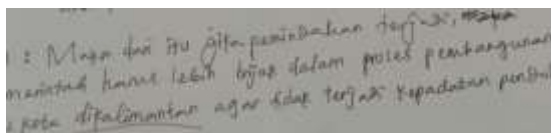 : Maka dari itu jika pemindahan terjadi, maka
merintah harus lebih bijak dalam proses pembangunan
kota dikalimantan agar tidak terjadi kepadatan pendu